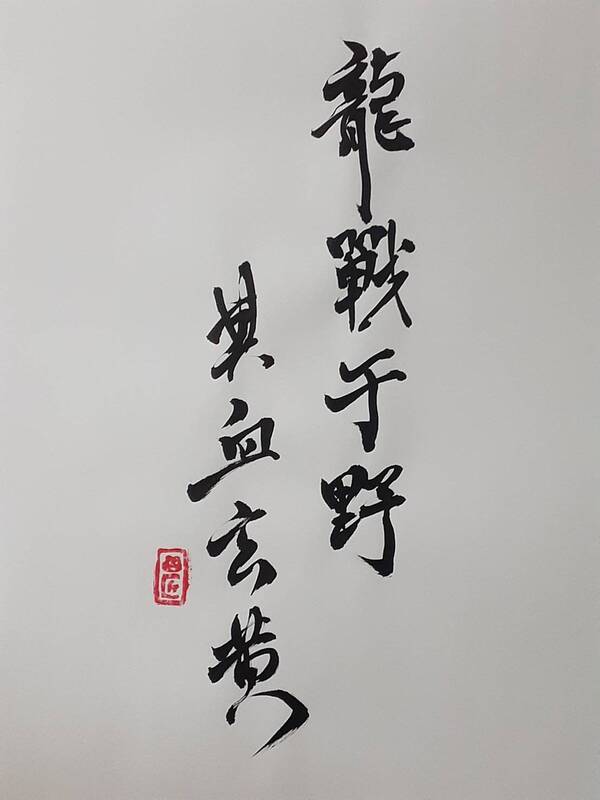 龍戰于野
其血玄黄